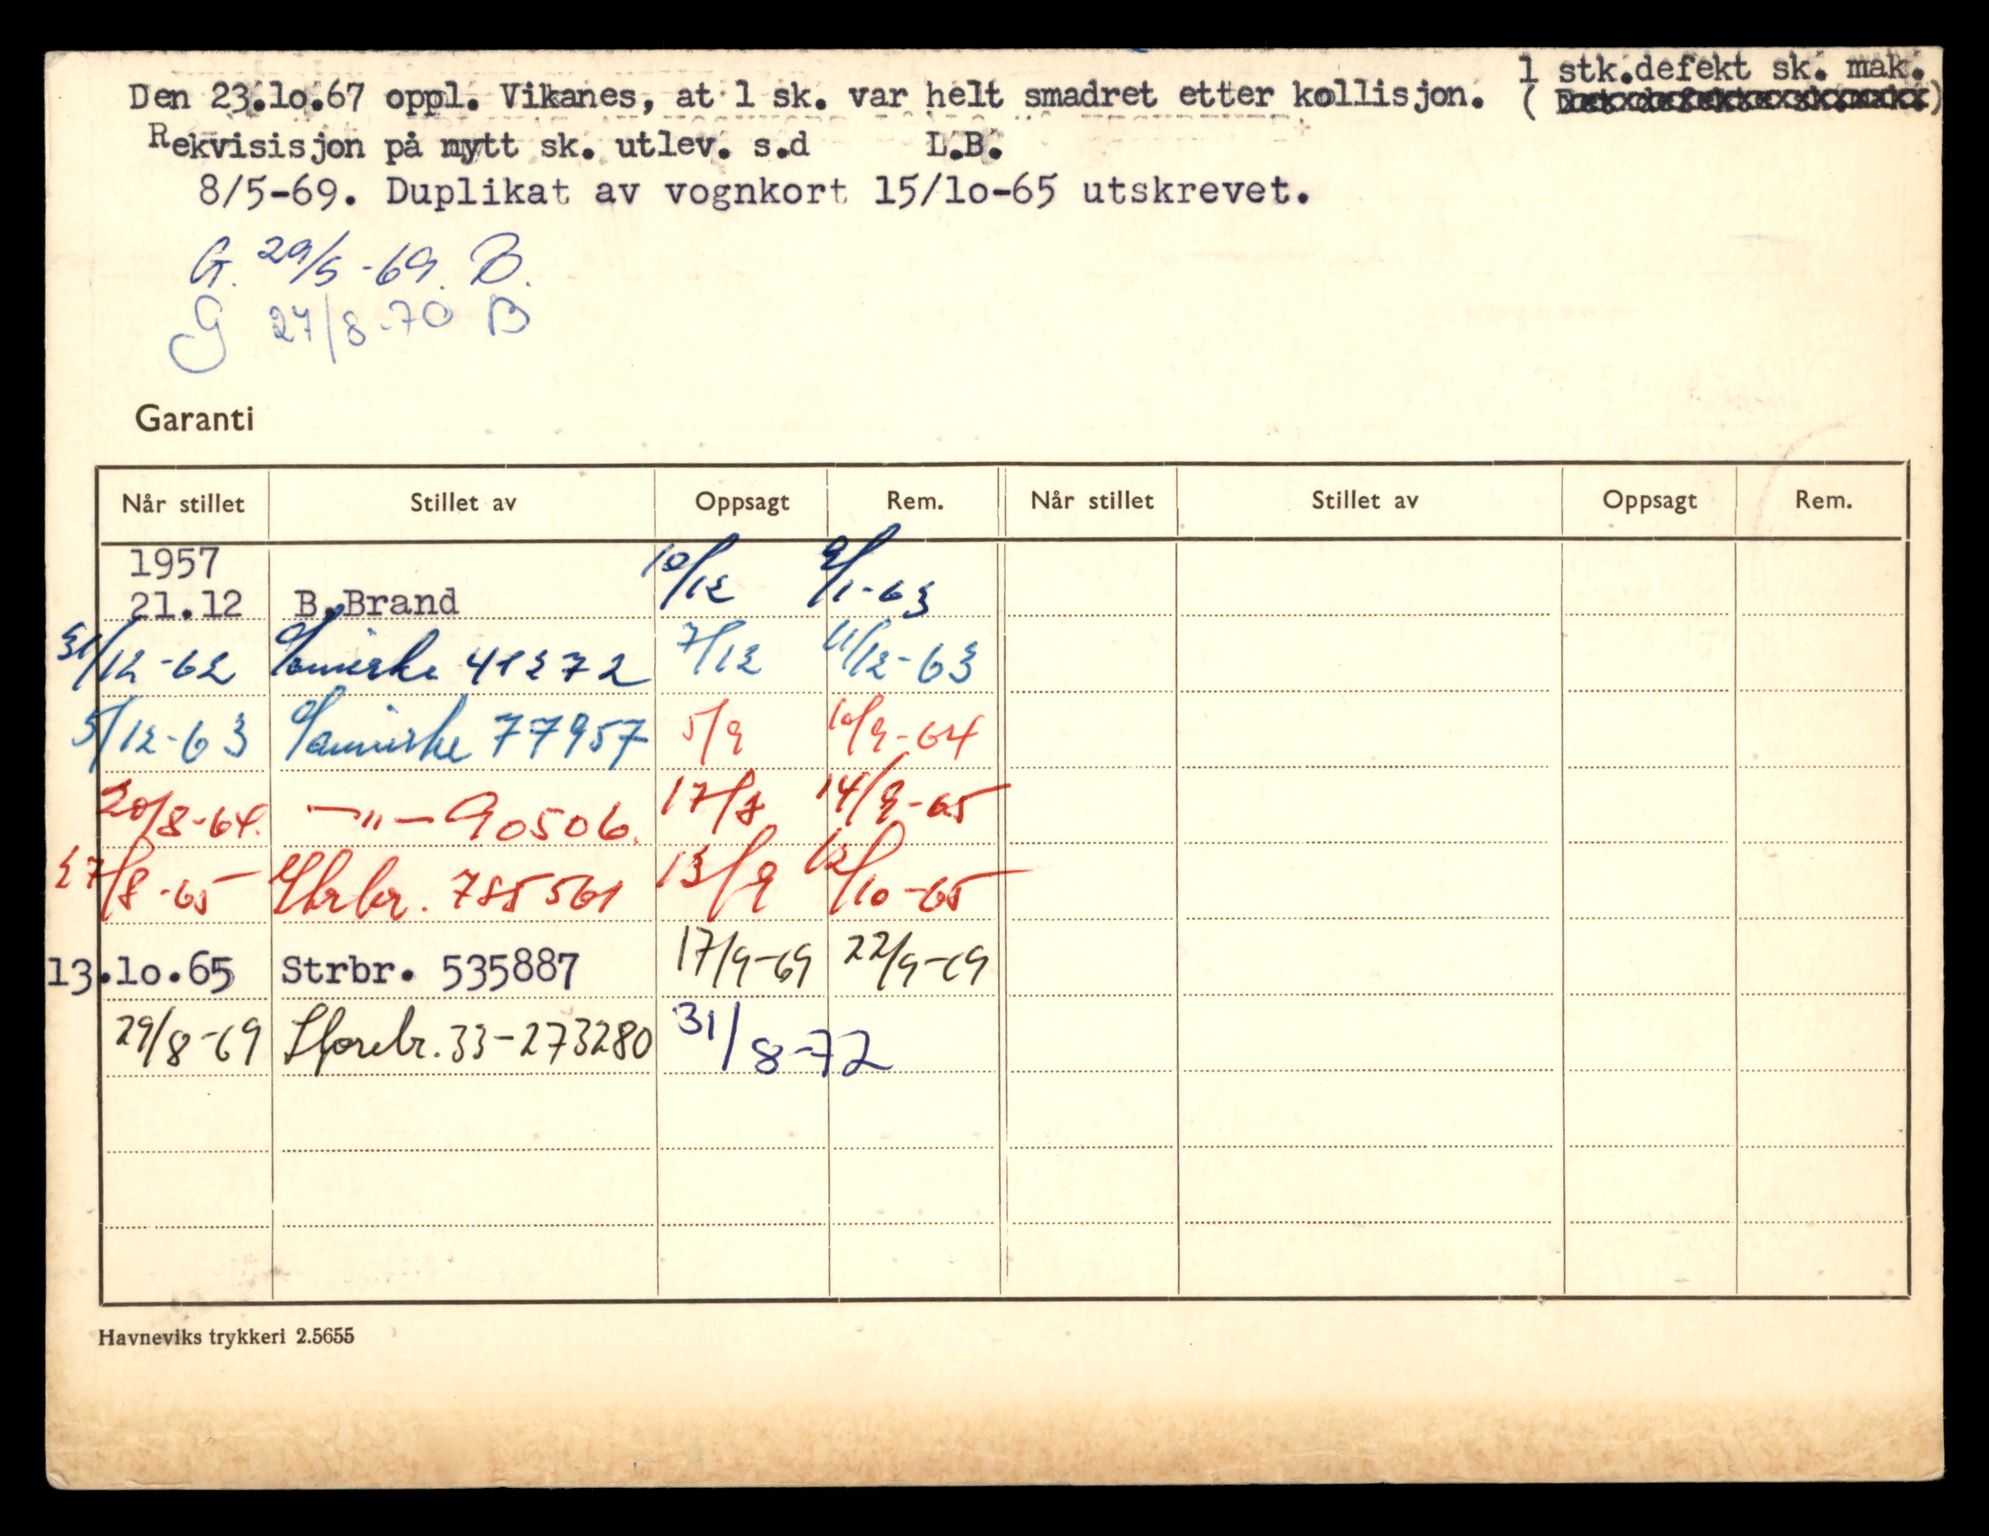 1 stk.defekt sk. mak.
Den 23.lo.67 oppl. Vikanes, at 1 sk. var helt smadret etter kollisjon. ( )
Rekvisisjon på nytt sk. utlev. s.d L.B.
8/5-69. Duplikat av vognkort 15/lo-65 utskrevet.
G. 29/5-69. B.
G 27/8-70 B
Garanti
Når stillet Stillet av Oppsagt Rem. Når stillet Stillet av Oppsagt Rem.
1957 10/12 9/1-63
21.12 B.Brand
31/12-62 41272 7/12 11/12-63
5/12-63 77957 5/9 10/9-64
20/8-64. —"— 90506. 17/8 14/9-65
27/8-65 Strbr. 785561 13/9 12/10-65
13.lo.65 Strbr. 535887 17/9-69 22/9-69
29/8-69 Storebr. 33-273280 31/8-72
Havneviks trykkeri 2.5655